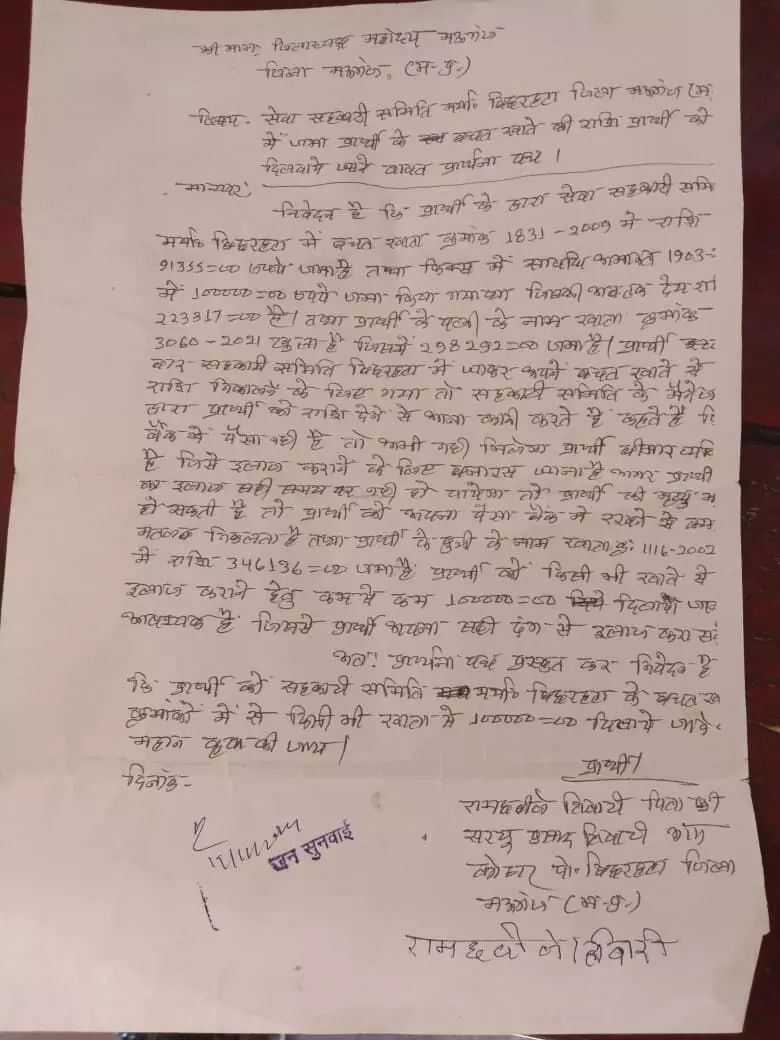 श्रीमान् जिलाध्यक्ष महोदय मऊगंज
जिला मऊगंज. (म.प्र.)
विषय. सेवा सहकारी समिति मर्या० बिहरहटा जिला मऊगंज (म.
में जमा प्रार्थी के बचत खाते की राशि प्रार्थी को
दिलवाये जाने बावत प्रार्थना पत्र ।
मान्यवर,
निवेदन है कि प्रार्थी के द्वारा सेवा सहकारी समि
मर्या० बिहरहटा में बचत खाता क्रमांक 1831-2009 में राशि
91355=00 रूपये जमा है तथा फिक्स में सावधि अमानत 1903-
में 100000=00 रूपये जमा किया गया था जिसकी अबतक देय रा
223817=00 है। तथा प्रार्थी के पत्नी के नाम खाता क्रमांक
3060-2021 खुला है जिसमें 298292=00 जमा है। प्रार्थी
कार सहकारी समिति बिहरहटा में जाकर अपने बचत खाते से
राशि निकालने के लिए गया तो सहकारी समिति के मैनेज
द्वारा प्रार्थी को राशि देने से आना कानी करते है कहते है कि
बैंक में पैसा नही है तो अभी नही मिलेगा प्रार्थी बीमार व्यक्ति
है जिसे इलाज कराने के लिए बनारस जाना है अगर प्रार्थी
का इलाज सही समय पर नही हो पायेगा तो प्रार्थी की मृत्यु भ
हो सकती है तो प्रार्थी को अपना पैसा बैंक में रखने से क्या
मतलब निकलता है तथा प्रार्थी के पुत्री के नाम खाता क्र: 1116-2002
में राशि 346136=00 जमा है प्रार्थी को किसी भी खाते से
इलाज कराने हेतु कम से कम 100000=00 दिलाया जाना
आवश्यक है जिससे प्रार्थी अपना सही ढंग से इलाज करा सके
अतः प्रार्थना पत्र प्रस्तुत कर निवेदन है
कि प्रार्थी को सहकारी समिति मर्या० बिहरहटा के बचत ख
क्रमांकों में से किसी भी खाता से 100000=00 दिलाये जाने
महान कृपा की जाय।
दिनांक-
प्रार्थी
रामछबीले तिवारी पिता श्री
सरयू प्रसाद तिवारी ग्राम
पो. बिहरहटा जिला
मऊगंज (म.प्र.)
जन सुनवाई
रामछबीले तिवारी